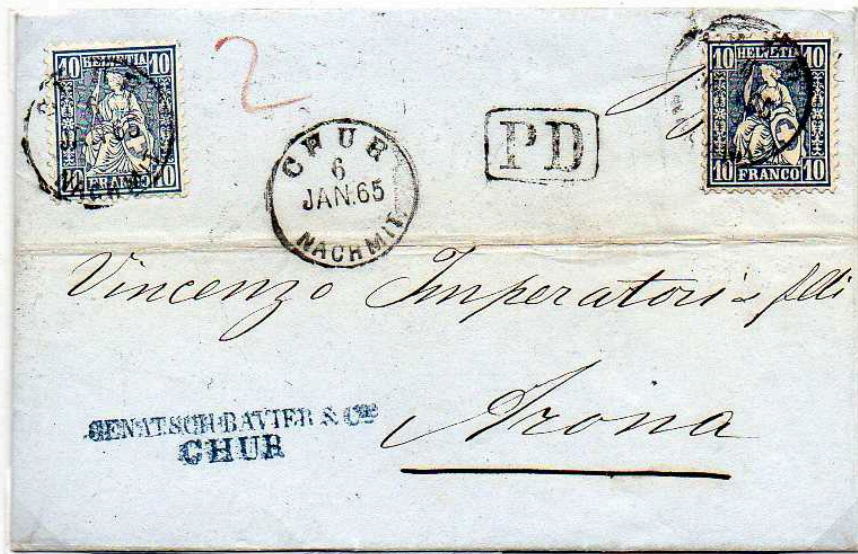 10 HELVETIA 10
10 FRANCO 10
2
CHUR
6
JAN. 65
NACHMIT.
PD
10 HELVETIA 10
10 FRANCO 10
Vincenzo Imperatori
Arona
GENATSCH BAVIER & Cie
CHUR